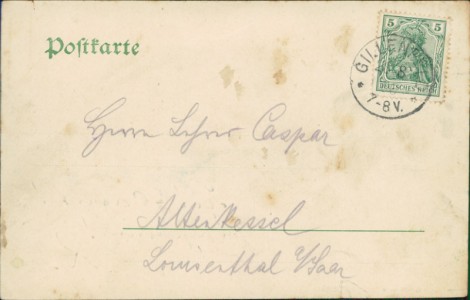 Postkarte
5 5
DEUTSCHES REICH
7-8V.
Herrn Lehrer Caspar
Altenkessel
Louisenthal a/Saar